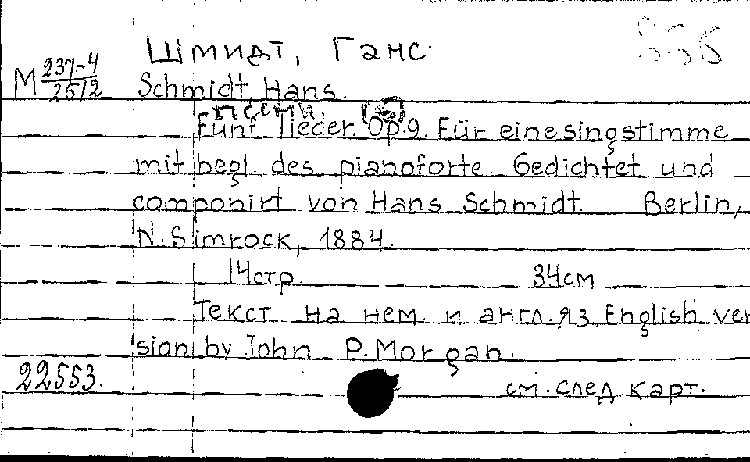 Шмидт, Ганс.
М 237-4
2512
Schmidt, Hans.
песни.
Fünf lieder. Op.9. Für eine singstimme
mit begl des pianoforte Gedichtet und
componirt von Hans Schmidt. Berlin,
N. Simrock, 1884.
14стр. 34см
Текст на нем. и англ. яз English ver
sion by John P. Morgan.
22553.
см. след карт.